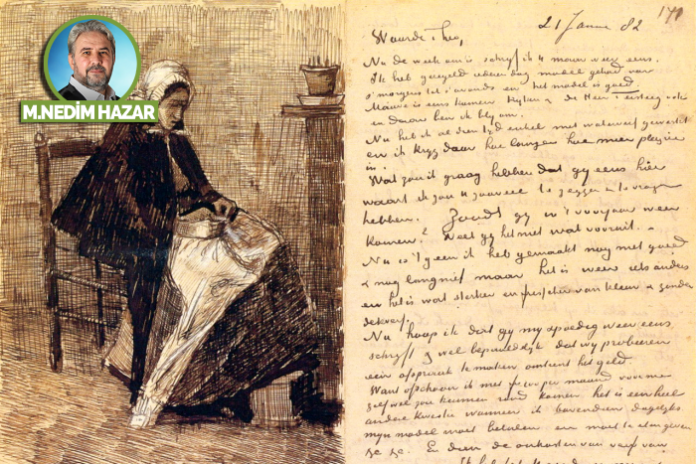 M.NEDİM HAZAR
21 Janu 82
Waarde Theo,
Nu de week om is schrijf ik U maar weer eens.
Ik heb geregeld iederen dag model gehad van
s'morgens tot s'avonds en het model is goed
Mauve is eens komen kijken & de Heer Tersteeg ook
en daar ben ik blij om.
Nu heb ik al den tijd enkel met waterverf gewerkt
en ik krijg daar hoe langer hoe meer plezier
in.
Wat zou ik graag hebben dat gij eens hier
waart ik zou U zooveel te zeggen & te vragen
hebben. Zoudt gij in't voorjaar weer
komen? Weet gij het met wat vooruit.
Nu is't geen ik heb gemaakt nog niet goed
& nog lang niet maar het is weer iets anders
en het is wat sterker en frisscher van kleur & zonder
dekverf.
Nu hoop ik dat gij mij spoedig weer eens
schrijft
een afspraak te maken omtrent het geld
Want ofschoon ik met per maand voor me
zelf wel zou kunnen rond komen het is een heel
andere kwestie wanneer ik bovendien dagelijks
mijn model moet betalen en moet te eten geven
En dien de onkosten van verf van